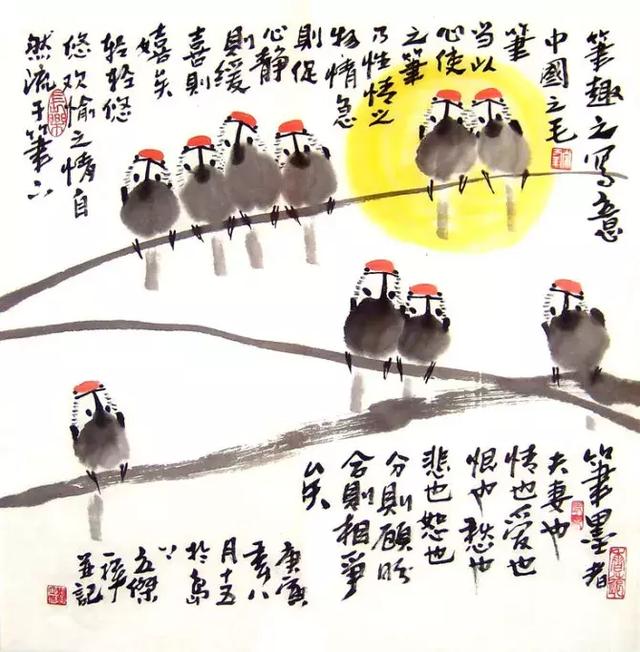 筆趣之写意
中國之毛
筆
当以
心使
之筆
乃性情之
物情急
則促
心静
則緩
喜則
嬉矣
轻轻悠
悠欢愉之情自
然流于筆下
筆墨者
夫妻也
情也愛也
恨也愁也
悲也恕也
分則顾盼
合則相争
矣
庚寅
年八
月十五
於島
五傑
並記